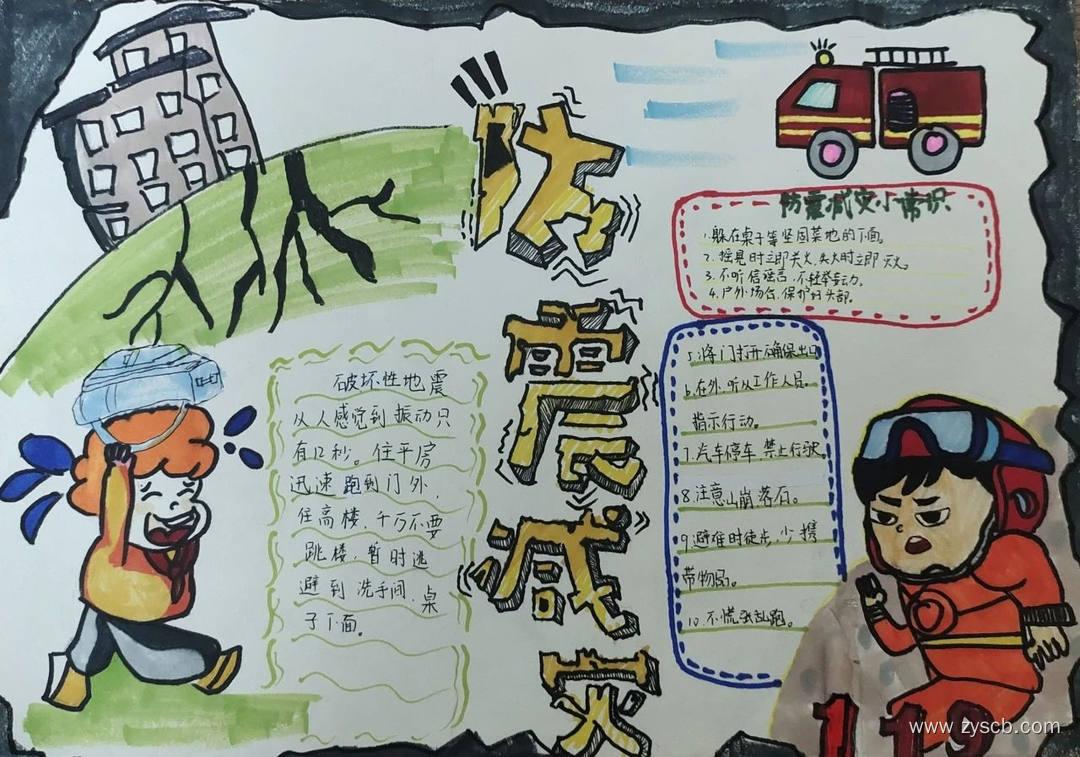 防震减灾
破坏性地震
从人感觉到振动只
有12秒。住平房
迅速跑到门外，
住高楼，千万不要
跳楼，暂时逃
避到洗手间、桌
子下面。
防震减灾小常识
1.躲在桌子等坚固菜地的下面。
2.摇晃时立即关火，失火时立即灭火。
3.不听信谣言，不轻举妄动。
4.户外场合，保护好头部。
5.将门打开确保出口
6.在外，听从工作人员
指示行动。
7.汽车停车，禁止行驶
8.注意山崩落石。
9.避难时徒步，少携
带物品。
10.不慌张乱跑。
119
www.zyscb.com